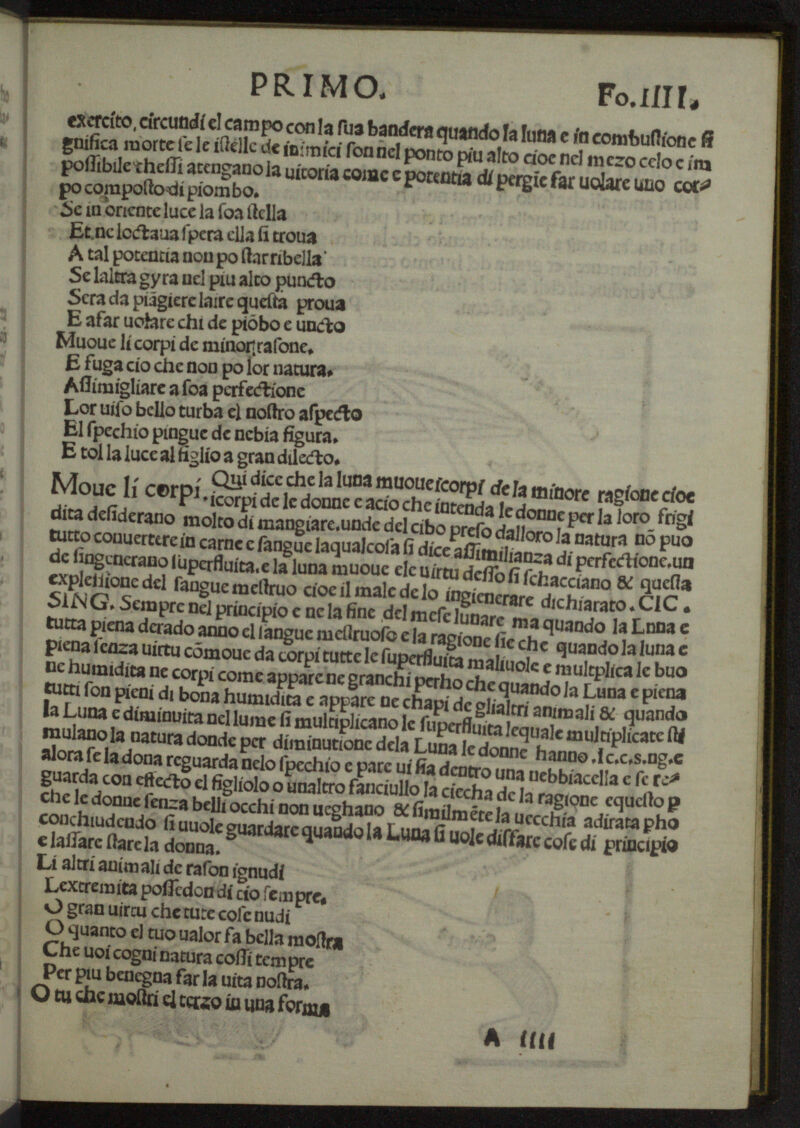 PRIMO. Fo.IIII.
exercito, circundi el campo con la ſua bandera quando la luna e in combuſtione ſi
gnifica morte ſe le iſtelle de inimici ſon nel ponto piu alto cioe nel mezo celo e im
poſſibile cheſſi atengano la uitoria come e potentia di pergie far uolare uno cor⸗
po compoſto di piombo.
Se in oriente luce la ſoa ſtella
Et ne loctaua ſpera ella ſi troua
A tal potentia non po ſtar ribella
Se laltra gyra nel piu alto puncto
Sera da piāgiere laire queſta proua
E afar uolare chi de piōbo e uncto
Muoue li corpi de minor raſone.
E fuga cio che non po lor natura.
Aſſimigliare a ſoa perfectione
Lor uiſo bello turba el noſtro aſpecto
El ſpechio pingue de nebia figura.
E tol la luce al figlio a gran dilecto.
Moue li corpi. Qui dice che la luna muoue icorpi de la minore ragione cioe
icorpi de le donne e acio che intenda le donne per la loro frigi
dita deſiderano molto di mangiare. unde del cibo preſo dalloro la natura nō puo
tutto conuertere in carne e ſangue laqualcoſa ſi dice aſſimilianza di perfectione. un
de ſingenerano ſuperfluita. e la luna muoue ele uirtu deſſo ſi ſchacciano & queſta
expleſſione del ſangue meſtruo cioe il male de lo ingienerare dichiarato. CIC.
SING. Sempre nel principio e ne la fine del meſe lunare ma quando la Lnna e
tutta piena derado anno el ſangue meſtruoſo e la ragione ſie che quando la luna e
piena ſenza uirtu cōmoue da corpi tutte le ſuperfluita maliuole e multplica le buo
ne humidita ne corpi come appare ne granchi perho che quando la Luna e piena
tutti ſon pieni di bona humidita e appare ne chapi de glialtri animali & quando
la Luna e diminuita nel lume ſi multiplicano le ſuperfluita lequale multiplicate ſti
mulano la natura donde per diminutione dela Luna le donne hanno .I c.c.s.ng.e
alora ſe la dona reguarda nelo ſpechio e pare ui ſia dentro una nebbiacella e ſe re⸗
guarda con effecto el figliolo o unaltro fanciullo la ciecha de la ragione equeſto p
che le donne ſenza belli occhi non ueghano & ſimilmēte la uecchia adirata pho
conchiudendo ſi uuole guardare quando la Luna ſi uole diſfare coſe di principio
e laſſare ſtare la donna.
Li altri animali de raſon ignudi
Lextremita poſſedon di cio ſempre.
O gran uirtu che tute coſe nudi
O quanto el tuo ualor fa bella moſtra
Che uoi cogni natura coſſi tempre
Per piu benegna far la uita noſtra.
O tu che moſtri el terzo in una forma
A IIII